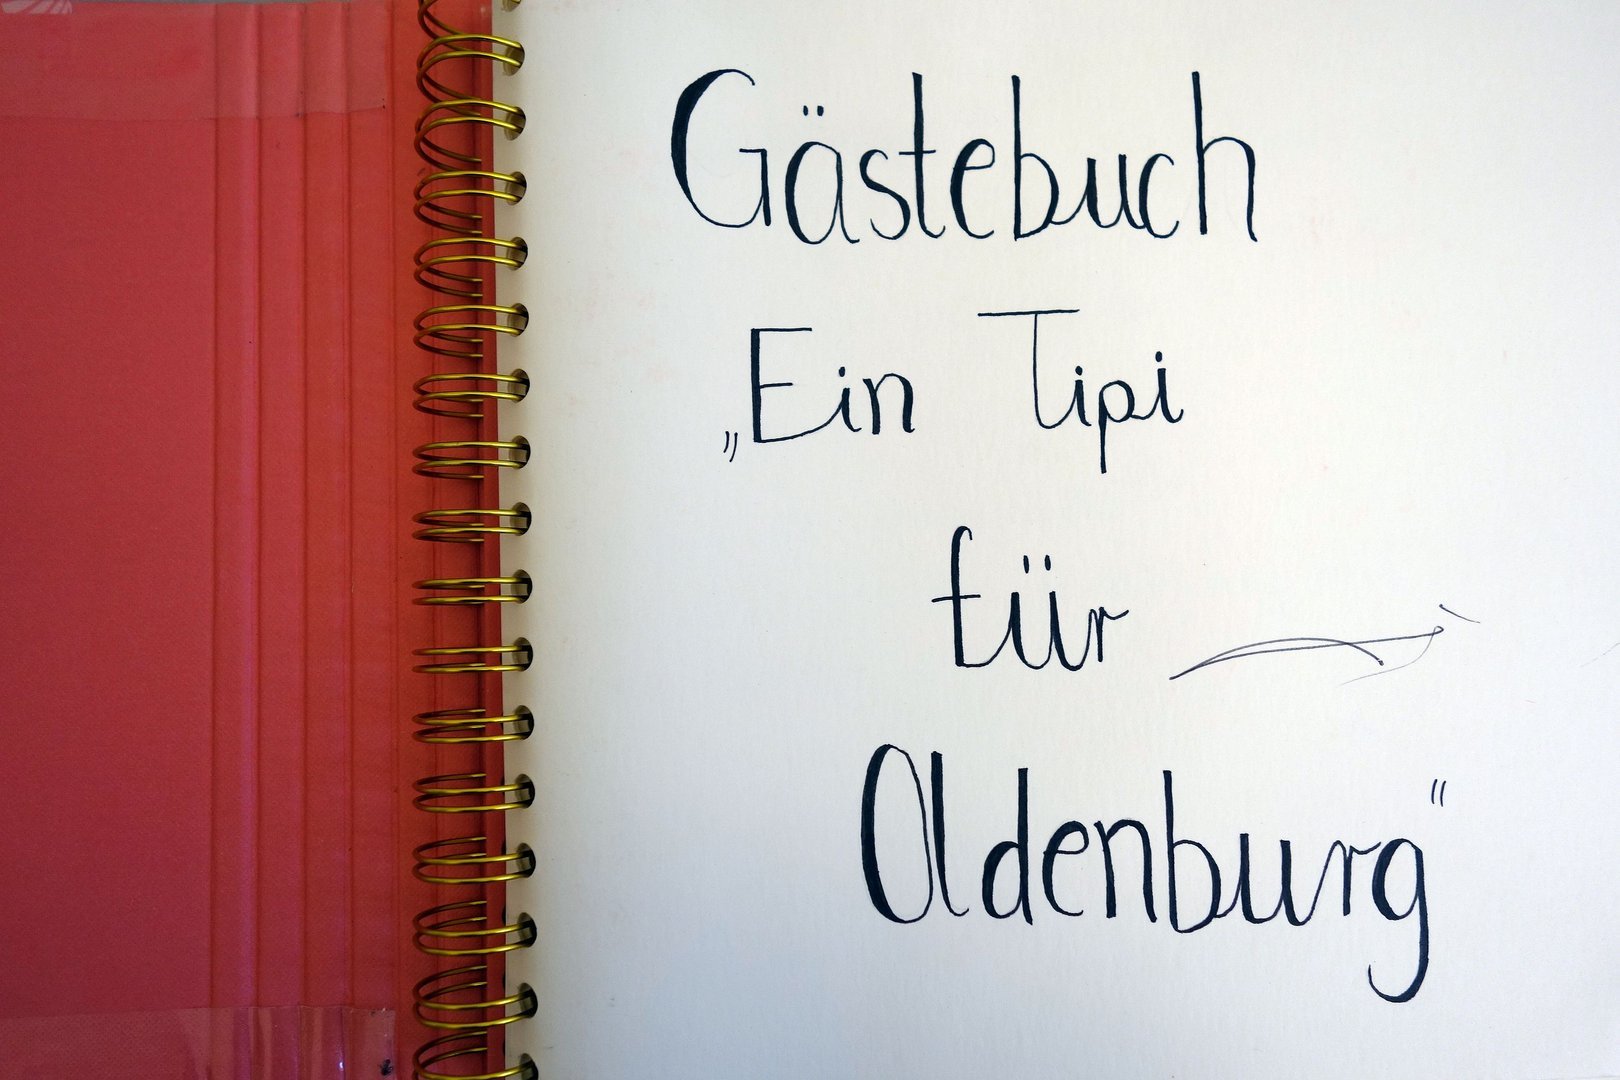 Gästebuch
„Ein Tipi
für
Oldenburg“